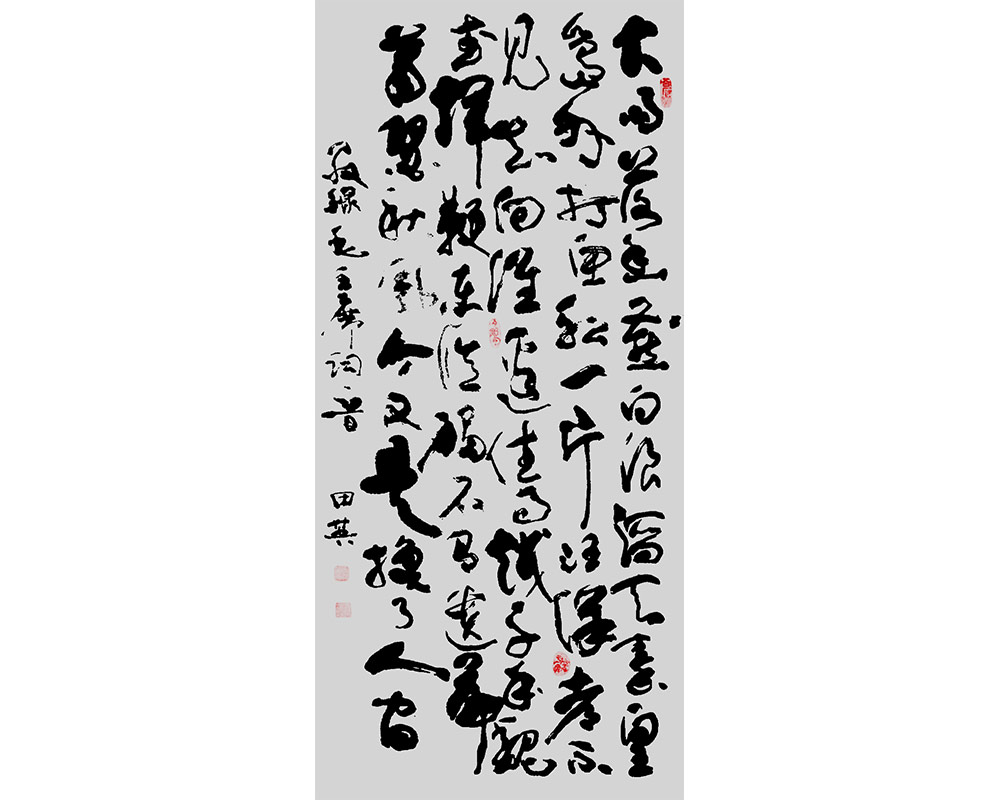 大雨落幽燕白浪滔天秦皇
岛外打鱼船一片汪洋都不
见知向谁边往事越千年魏
武挥鞭东临碣石有遗篇
萧瑟秋風今又是换了人间
録毛主席词一首 田英